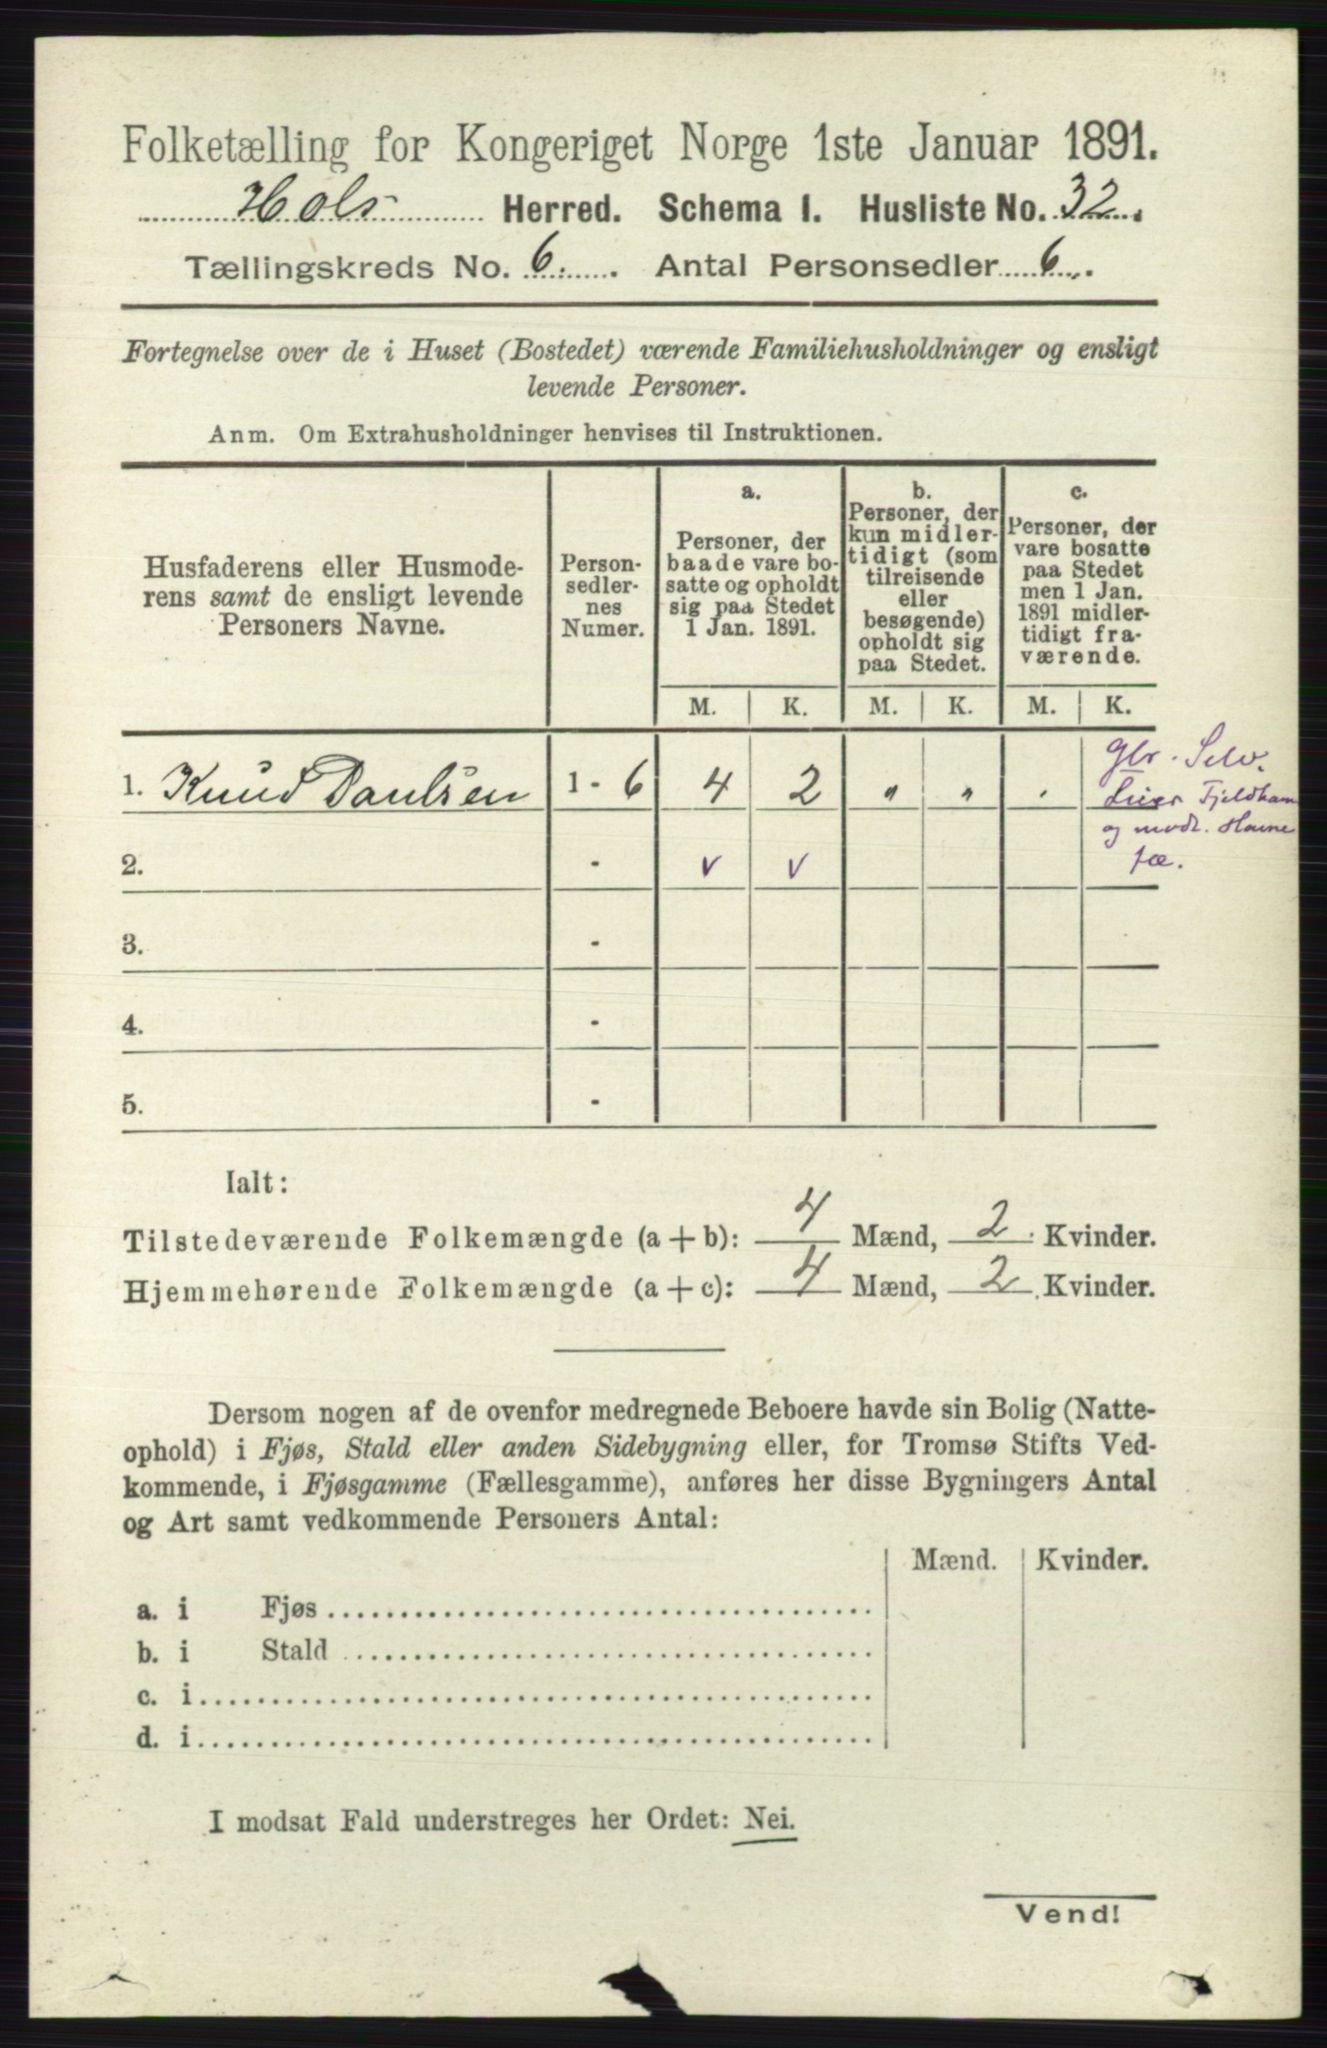 Folketælling for Kongeriget Norge 1ste Januar 1891.
Hols Herred. Schema I. Husliste No. 32.
Tællingskreds No. 6. Antal Personsedler 6.
Fortegnelse over de i Huset (Bostedet) værende Familiehusholdninger og ensligt
levende Personer.
Anm. Om Extrahusholdninger henvises til Instruktionen.
Husfaderens eller Husmode-
rens samt de ensligt levende
Personers Navne.
Person-
sedler-
nes
Numer.
a.
Personer, der
baade vare bo-
satte og opholdt
sig paa Stedet
1 Jan. 1891.
b.
Personer, der
kun midler-
tidigt (som
tilreisende
eller
besøgende)
opholdt sig
paa Stedet.
c.
Personer, der
vare bosatte
paa Stedet
men 1 Jan.
1891 midler-
tidigt fra-
værende.
M. K. M. K. M. K.
1. Knud Paulsen 1 - 6 4 2 „ „ .
Glr. Selv.
Leier Fjeldham
og modt. Havne
fæ.
2. - v v
3. -
4. -
5. -
Ialt:
Tilstedeværende Folkemængde (a + b): 4 Mænd, 2 Kvinder.
Hjemmehørende Folkemængde (a + c): 4 Mænd, 2 Kvinder.
Dersom nogen af de ovenfor medregnede Beboere havde sin Bolig (Natte-
ophold) i Fjøs, Stald eller anden Sidebygning eller, for Tromsø Stifts Ved-
kommende, i Fjøsgamme (Fællesgamme), anføres her disse Bygningers Antal
og Art samt vedkommende Personers Antal:
Mænd. Kvinder.
a. i Fjøs
b. i Stald
c. i
d. i
I modsat Fald understreges her Ordet: Nei.
Vend!